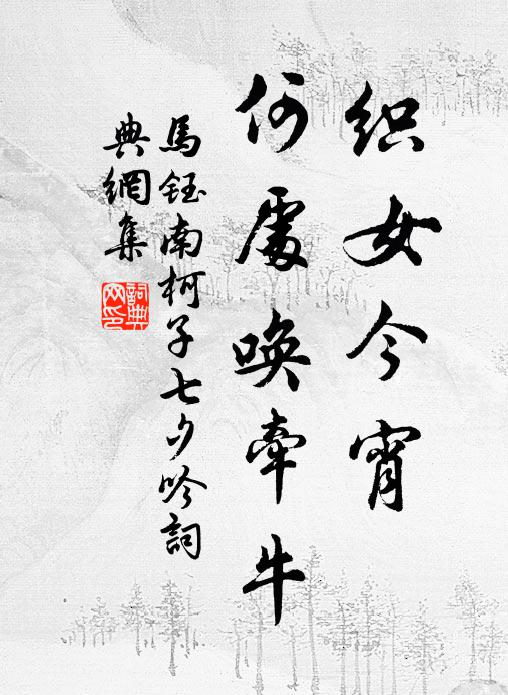 织女今宵
何處唤牽牛
馬鈺南柯子七夕吟詞
典網集
詞典
网印